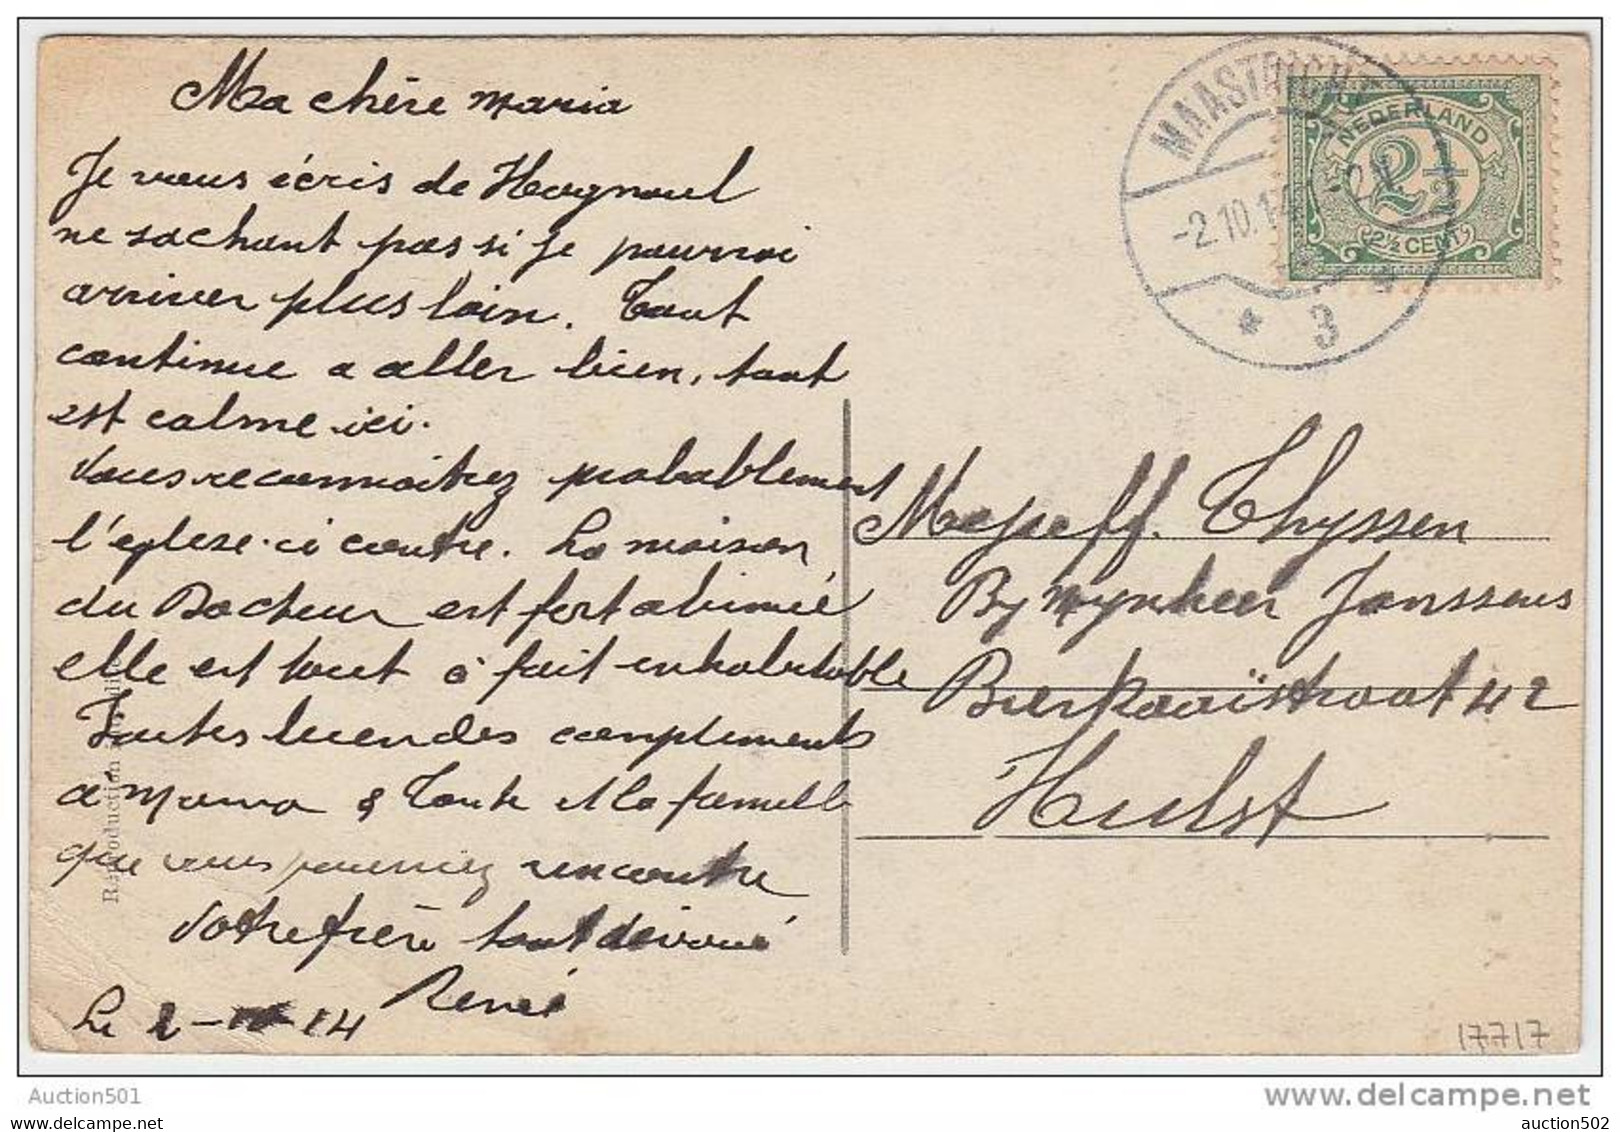 Ma chère Maria
Je vous écris de Hognoul
ne sachant pas si je pourrai
arriver plus loin. Tout
continue a aller bien, tout
est calme ici.
Vous reconnaitrez probablement
l'église ci contre. La maison
du Docteur est fort abimée
elle est tout à fait inhabitable
Toutes bien des compliments
a & Tante et la famille
que vous pourriez rencontre
Votre frère tout dévoué
René
Le 2 - 14
MAASTRICHT
-2.10.14
3
NEDERLAND
2½
2½ CENT
Thyssen
By Mynheer Janssens
Bierkaaistraat 42
Hulst
Reproduction
17717
Auction501
delcampe.net
auction502
auction502